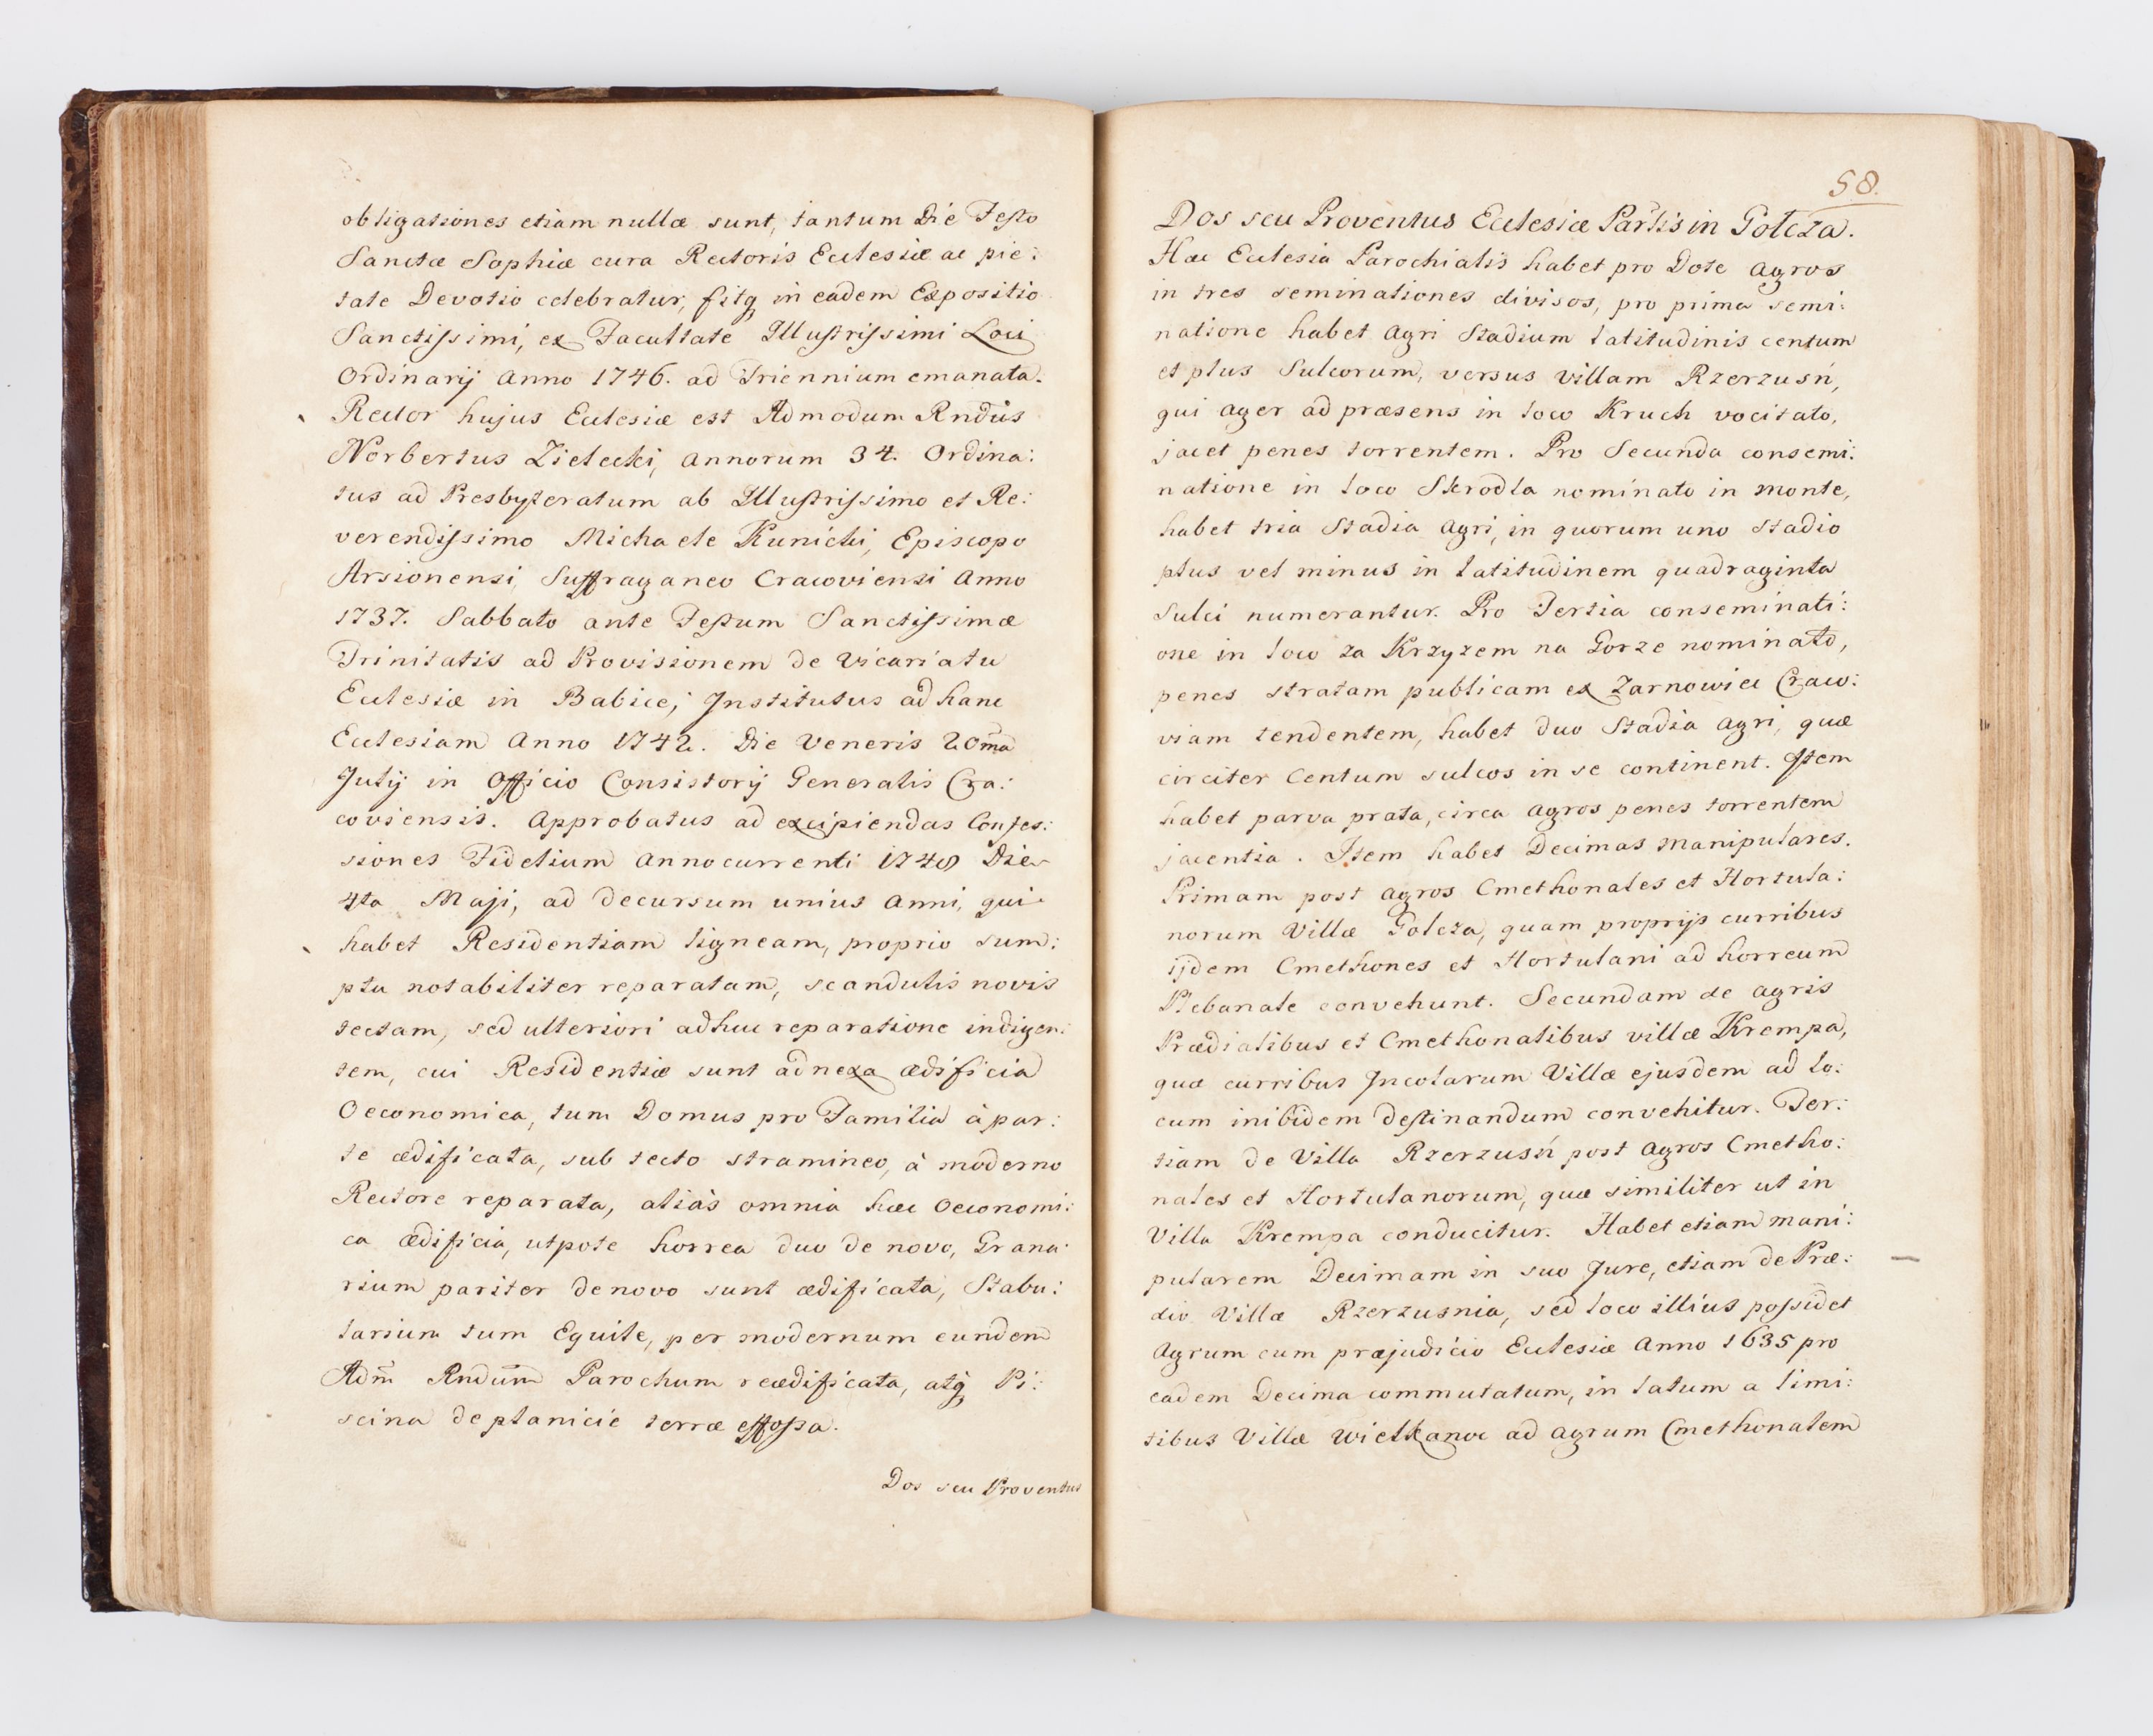 obligationes etiam nullæ sunt, tantum Die Festo
Sanctæ Sophiæ cura Rectoris Ecclesiæ ac pie:
tate Devotio celebratur, fitq in eadem Expositio
Sanctissimi, ex Facultate Illustrissimi Loci
Ordinarij Anno 1746. ad Triennium emanata.
Rector hujus Ecclesiæ est Admodum Rndus
Norbertus Zielecki, Annorum 34. Ordina:
tus ad Presbyteratum ab Illustrissimo et Re:
verendissimo Michaele Kunicki, Episcopo
Arsionensi, Suffraganeo Cracoviensi Anno
1737. Sabbato ante Festum Sanctissimæ
Trinitatis ad Provisionem de Vicariatu
Ecclesiæ in Babice, Institutus ad hanc
Ecclesiam Anno 1742. Die Veneris 20ma
Julij in Officio Consistorij Generalis Cra:
coviensis. Approbatus ad excipiendas Confes:
siones Fidelium Anno currenti 1748 Die
4ta Maji, ad decursum unius Anni, qui
habet Residentiam ligneam, proprio sum:
ptu notabiliter reparatam, scandulis novis
tectam, sed ulteriori adhuc reparatione indigen:
tem, cui Residentiæ sunt adnexa ædificia
Oeconomica, tum Domus pro Familia à par:
te ædificata, sub tecto stramineo, à moderno
Rectore reparata, aliàs omnia hæc Oeconomi:
ca Ædificia, utpote horrea duo de novo, Grana:
rium pariter denovo sunt ædificata, Stabu:
larium tum Equile, per modernum eundem
Adm Rndum Parochum reædificata, atq Pi:
scina de planicie terræ effossa.
Dos seu Proventus
58.
Dos seu Proventus Ecclesiæ Partis in Gołcza.
Hæc Ecclesia Parochialis habet pro Dote Agros
in tres seminationes divisos, pro prima semi:
natione habet Agri Stadium latitudinis centum
et plus Sulcorum, versus Villam Rzerzusń,
qui Ager ad præsens in loco Kruch vocitato,
jacet penes torrentem. Pro Secunda consemi:
natione in loco Skrodla nominato in monte,
habet tria Stadia Agri, in quorum uno Stadio
plus vel minus in latitudinem quadraginta
Sulci numerantur. Pro Tertia conseminati:
one in loco za Krzyzem na Gorze nominato,
penes stratam publicam ex Zarnowiec Craco:
viam tendentem, habet duo Stadia Agri, quæ
circiter Centum sulcos in se continent. Item
habet parva prata, circa Agros penes torrentem
jacentia. Item habet Decimas Manipulares.
Primam post Agros Cmethonales et Hortula:
norum Villæ Golcza, quam proprijs curribus
ijdem Cmethones et Hortulani ad horreum
Plebanale convehunt. Secundam de Agris
Prædialibus et Cmethonalibus villæ Krempa,
quæ curribus Incolarum Villæ ejusdem ad lo:
cum inibidem destinandum convehitur. Ter:
tiam de Villa Rzerzusń post Agros Cmetho:
nales et Hortulanorum, quæ similiter ut in
Villa Krempa conducitur. Habet etiam mani:
pularem Decimam in suo Jure, etiam de Præ:
dio Villæ Rzerzusnia, sed loco illius possidet
Agrum cum præjudicio Ecclesiæ Anno 1635 pro
eadem Decima commutatum, in latum a limi:
tibus Villæ Wielkanoc ad agrum Cmethonalem